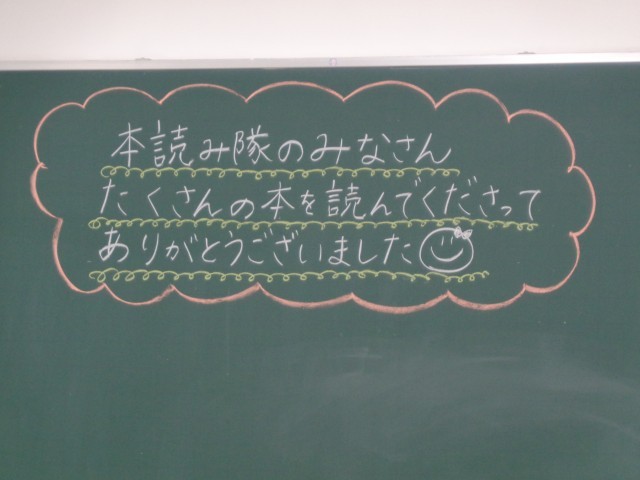 本読み隊のみなさん
たくさんの本を読んでくださって
ありがとうございました